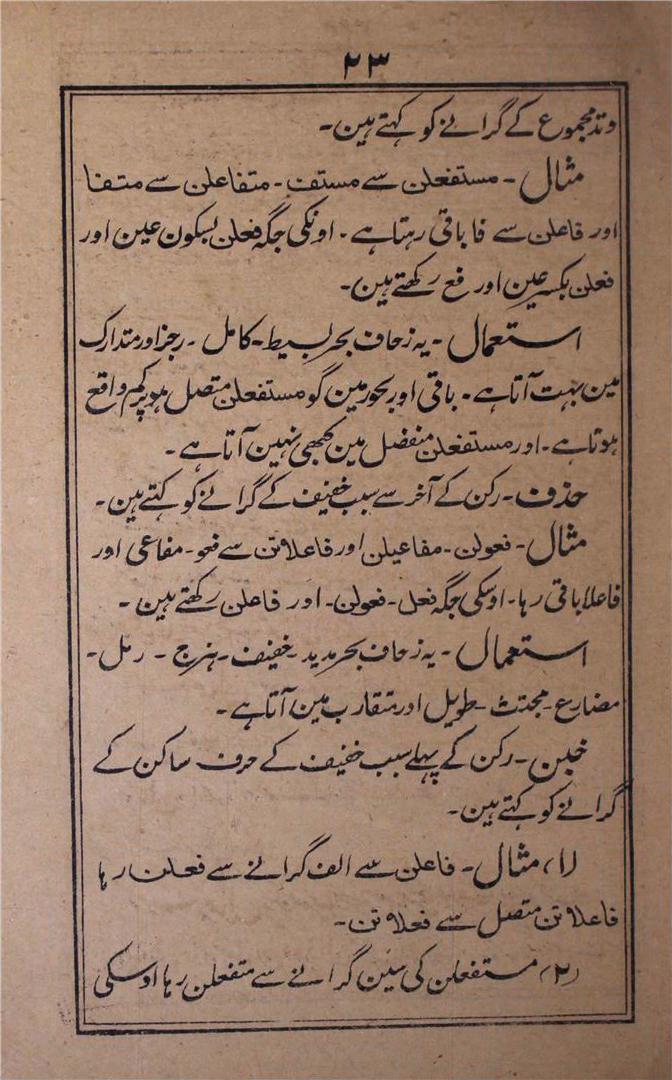 ۲۳
وتد مجموع کے گرانے کو کہتے ہین۔
مثال ۔ مستفعلن سے مستف ۔ متفاعلن سے متفا
اور فاعلن سے فا باقی رہتا ہے ۔ اونکی جگہ فعلن بسکون عین اور
فعلن بکسر عین اور فع رکھتے ہین۔
استعمال ۔ یہ زحاف بحر بسیط ۔ کامل ۔ رجز اور متدارک
مین بہت آتا ہے ۔ باقی اور بحور مین گو مستفعلن متصل ہو پر کم واقع
ہوتا ہے ۔ اور مستفعلن منفصل مین کبھی نہین آتا ہے ۔
حذف ۔ رکن کے آخر سے سبب خفیف کے گرانے کو کہتے ہین ۔
مثال ۔ فعولن ۔ مفاعیلن اور فاعلاتن سے فعو ۔ مفاعی اور
فاعلا باقی رہا ۔ اوسکی جگہ فعل ۔ فعولن ۔ اور فاعلن رکھتے ہین ۔
استعمال ۔ یہ زحاف بحر مدید ۔ خفیف ۔ ہزج ۔ رمل ۔
مضارع ۔ مجتث ۔ طویل اور متقارب مین آتا ہے ۔
خبن ۔ رکن کے پہلے سبب خفیف کے حرف ساکن کے
گرانے کو کہتے ہین ۔
(۱) مثال ۔ فاعلن سے الف گرانے سے فعلن رہا
فاعلاتن متصل سے فعلاتن ۔
(۲) مستفعلن کی سین گرانے سے متفعلن رہا اوسکی